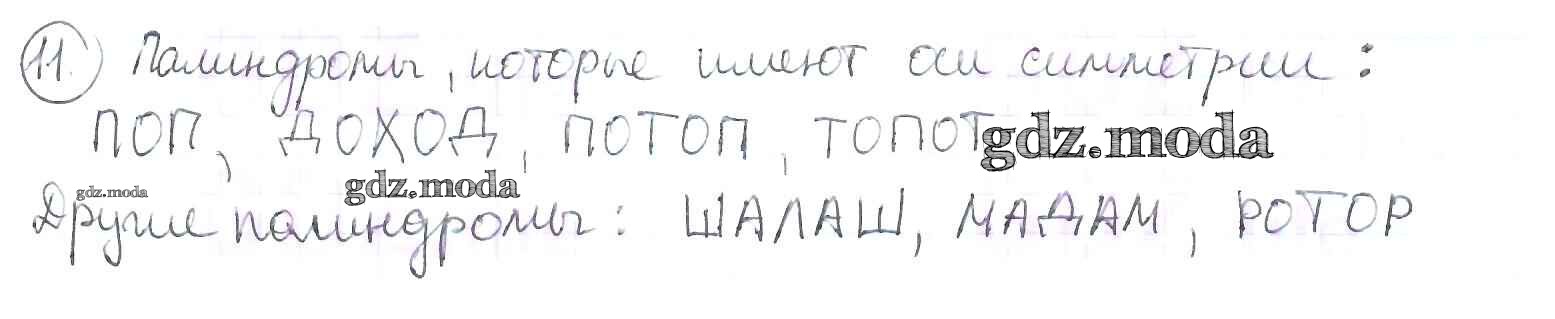 11. Палиндромы, которые имеют оси симметрии:
ПОП, ДОХОД, ПОТОП, ТОПОТ gdz.moda
gdz.moda gdz.moda
Другие палиндромы: ШАЛАШ, МАДАМ, РОТОР